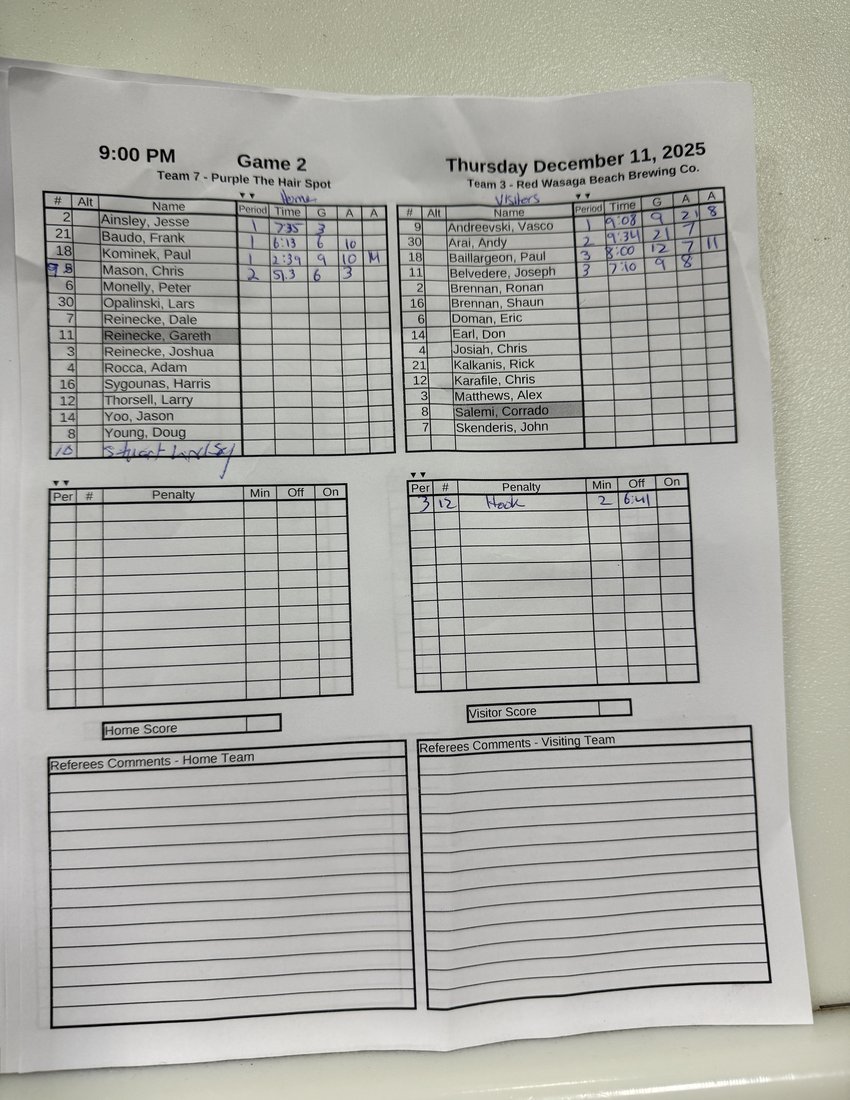 9:00 PM Game 2 Thursday December 11, 2025
Team 7 - Purple The Hair Spot
Team 3 - Red Wasaga Beach Brewing Co.
Home
# Alt Name Period Time G A A
2 Ainsley, Jesse 1 7:35 3
21 Baudo, Frank 1 6:13 6 10
18 Kominek, Paul 1 2:39 9 10 14
9 Mason, Chris 2 51.3 6 3
6 Monelly, Peter
30 Opalinski, Lars
7 Reinecke, Dale
11 Reinecke, Gareth
3 Reinecke, Joshua
4 Rocca, Adam
16 Sygounas, Harris
12 Thorsell, Larry
14 Yoo, Jason
8 Young, Doug
10 Stuart Lindsay
Visitors
# Alt Name Period Time G A A
9 Andreevski, Vasco 1 9:08 9 21 8
30 Arai, Andy 2 9:34 21 7
18 Baillargeon, Paul 3 8:00 12 7 11
11 Belvedere, Joseph 3 7:10 9 8
2 Brennan, Ronan
16 Brennan, Shaun
6 Doman, Eric
14 Earl, Don
4 Josiah, Chris
21 Kalkanis, Rick
12 Karafile, Chris
3 Matthews, Alex
8 Salemi, Corrado
7 Skenderis, John
Per # Penalty Min Off On
Per # Penalty Min Off On
3 12 Hook 2 6:41
Home Score
Visitor Score
Referees Comments - Home Team
Referees Comments - Visiting Team